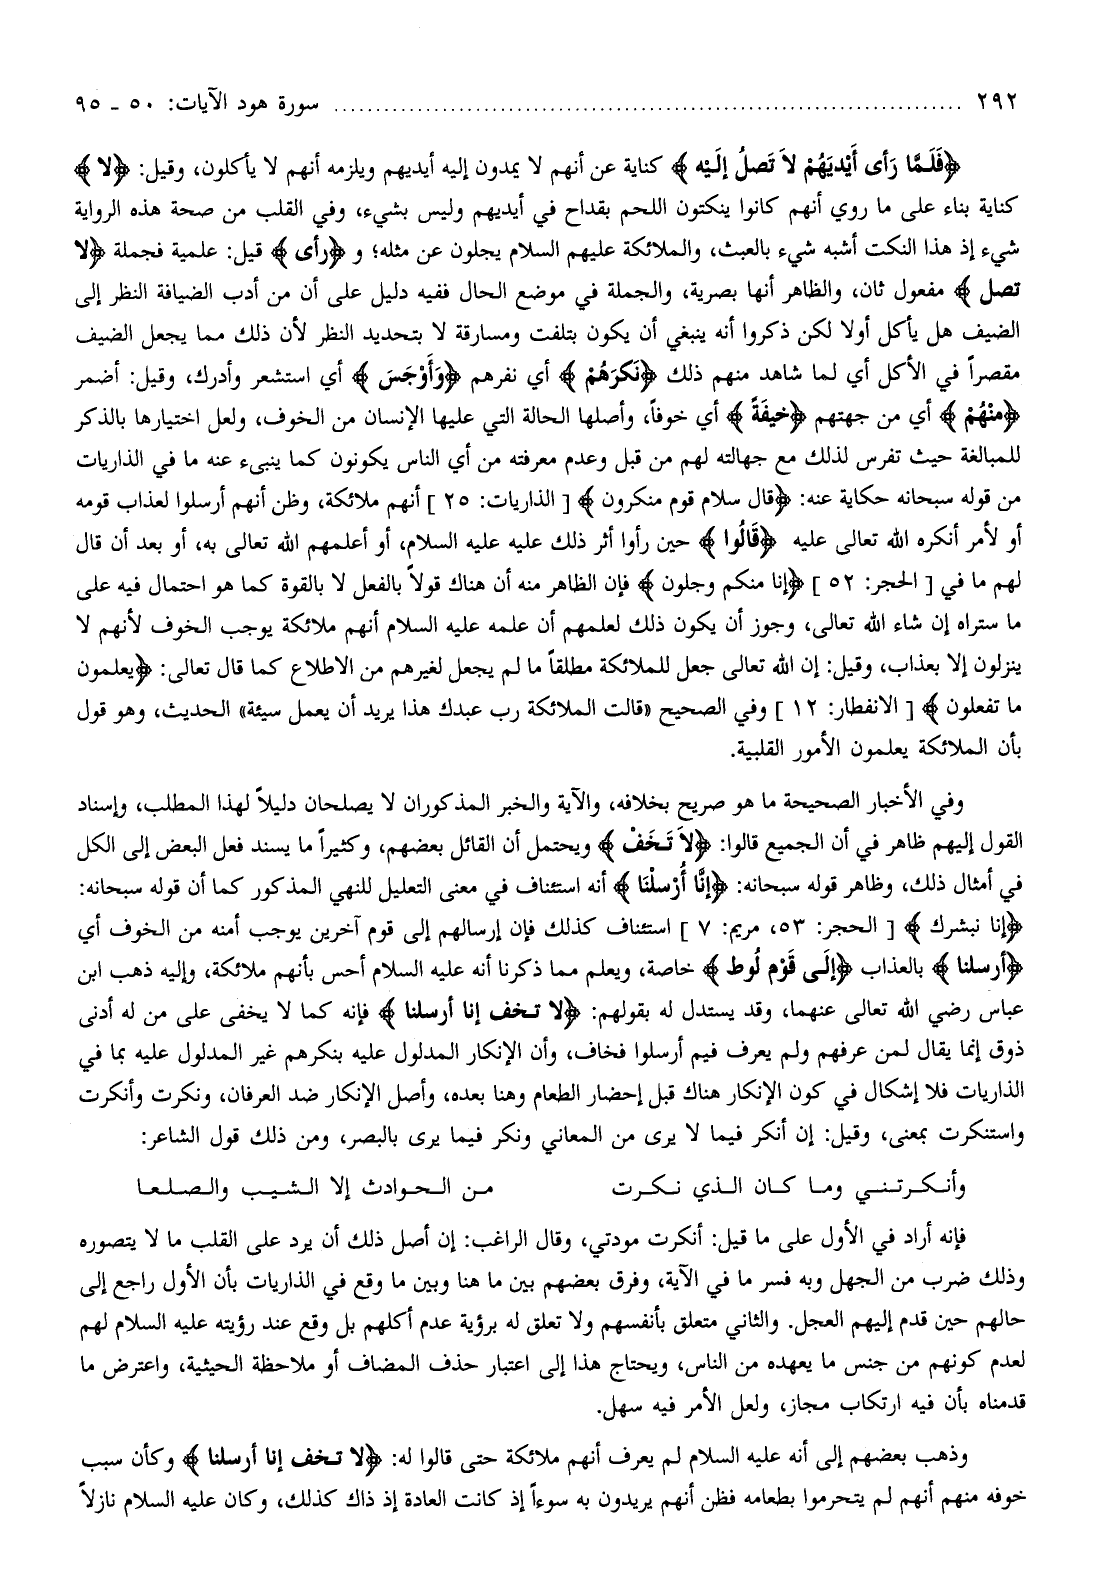 ٢٩٢ ........................................ سورة هود الآيات: ٥٠ ـ ٩٥
﴿فَلَمَّا رَأى أَيْدِيَهُمْ لاَ تَصلُ إلَيْه﴾ كناية عن أنهم لا يمدون إليه أيديهم ويلزمه أنهم لا يأكلون، وقيل: ﴿لا﴾
كناية بناء على ما روي أنهم كانوا ينكتون اللحم بقداح في أيديهم وليس بشيء، وفي القلب من صحة هذه الرواية
شيء إذ هذا النكت أشبه شيء بالعبث، والملائكة عليهم السلام يجلون عن مثله؛ و ﴿رأى﴾ قيل: علمية فجملة ﴿لا
تصل﴾ مفعول ثان، والظاهر أنها بصرية، والجملة في موضع الحال ففيه دليل على أن من أدب الضيافة النظر إلى
الضيف هل يأكل أولا لكن ذكروا أنه ينبغي أن يكون بتلفت ومسارقة لا بتحديد النظر لأن ذلك مما يجعل الضيف
مقصراً في الأكل أي لما شاهد منهم ذلك ﴿نَكَرَهُمْ﴾ أي نفرهم ﴿وَأَوْجَسَ﴾ أي استشعر وأدرك، وقيل: أضمر
﴿منْهُمْ﴾ أي من جهتهم ﴿خيفَةً﴾ أي خوفاً، وأصلها الحالة التي عليها الإنسان من الخوف، ولعل اختيارها بالذكر
للمبالغة حيث تفرس لذلك مع جهالته لهم من قبل وعدم معرفته من أي الناس يكونون كما ينبىء عنه ما في الذاريات
من قوله سبحانه حكاية عنه: ﴿قال سلام قوم منكرون﴾ [ الذاريات: ٢٥ ] أنهم ملائكة، وظن أنهم أرسلوا لعذاب قومه
أو لأمر أنكره الله تعالى عليه ﴿قَالُوا﴾ حين رأوا أثر ذلك عليه عليه السلام، أو أعلمهم الله تعالى به، أو بعد أن قال
لهم ما في [ الحجر: ٥٢ ] ﴿إنا منكم وجلون﴾ فإن الظاهر منه أن هناك قولاً بالفعل لا بالقوة كما هو احتمال فيه على
ما ستراه إن شاء الله تعالى، وجوز أن يكون ذلك لعلمهم أن علمه عليه السلام أنهم ملائكة يوجب الخوف لأنهم لا
ينزلون إلا بعذاب، وقيل: إن الله تعالى جعل للملائكة مطلقاً ما لم يجعل لغيرهم من الاطلاع كما قال تعالى: ﴿يعلمون
ما تفعلون﴾ [ الانفطار: ١٢ ] وفي الصحيح «قالت الملائكة رب عبدك هذا يريد أن يعمل سيئة» الحديث، وهو قول
بأن الملائكة يعلمون الأمور القلبية.
وفي الأخبار الصحيحة ما هو صريح بخلافه، والآية والخبر المذكوران لا يصلحان دليلاً لهذا المطلب، وإسناد
القول إليهم ظاهر في أن الجميع قالوا: ﴿لاَ تَخَفْ﴾ ويحتمل أن القائل بعضهم، وكثيراً ما يسند فعل البعض إلى الكل
في أمثال ذلك، وظاهر قوله سبحانه: ﴿إنَّا أُرْسلْنَا﴾ أنه استئناف في معنى التعليل للنهي المذكور كما أن قوله سبحانه:
﴿إنا نبشرك﴾ [ الحجر: ٥٣، مريم: ٧ ] استئناف كذلك فإن إرسالهم إلى قوم آخرين يوجب أمنه من الخوف أي
﴿أرسلنا﴾ بالعذاب ﴿إلَى قَوْم لُوط﴾ خاصة، ويعلم مما ذكرنا أنه عليه السلام أحس بأنهم ملائكة، وإليه ذهب ابن
عباس رضي الله تعالى عنهما، وقد يستدل له بقولهم: ﴿لا تخف إنا أرسلنا﴾ فإنه كما لا يخفى على من له أدنى
ذوق إنما يقال لمن عرفهم ولم يعرف فيم أرسلوا فخاف، وأن الإنكار المدلول عليه بنكرهم غير المدلول عليه بما في
الذاريات فلا إشكال في كون الإنكار هناك قبل إحضار الطعام وهنا بعده، وأصل الإنكار ضد العرفان، ونكرت وأنكرت
واستنكرت بمعنى، وقيل: إن أنكر فيما لا يرى من المعاني ونكر فيما يرى بالبصر، ومن ذلك قول الشاعر:
وأنكرتني وما كان الذي نكرت من الحوادث إلا الشيب والصلعا
فإنه أراد في الأول على ما قيل: أنكرت مودتي، وقال الراغب: إن أصل ذلك أن يرد على القلب ما لا يتصوره
وذلك ضرب من الجهل وبه فسر ما في الآية، وفرق بعضهم بين ما هنا وبين ما وقع في الذاريات بأن الأول راجع إلى
حالهم حين قدم إليهم العجل. والثاني متعلق بأنفسهم ولا تعلق له برؤية عدم أكلهم بل وقع عند رؤيته عليه السلام لهم
لعدم كونهم من جنس ما يعهده من الناس، ويحتاج هذا إلى اعتبار حذف المضاف أو ملاحظة الحيثية، واعترض ما
قدمناه بأن فيه ارتكاب مجاز، ولعل الأمر فيه سهل.
وذهب بعضهم إلى أنه عليه السلام لم يعرف أنهم ملائكة حتى قالوا له: ﴿لا تخف إنا أرسلنا﴾ وكأن سبب
خوفه منهم أنهم لم يتحرموا بطعامه فظن أنهم يريدون به سوءاً إذ كانت العادة إذ ذاك كذلك، وكان عليه السلام نازلاً